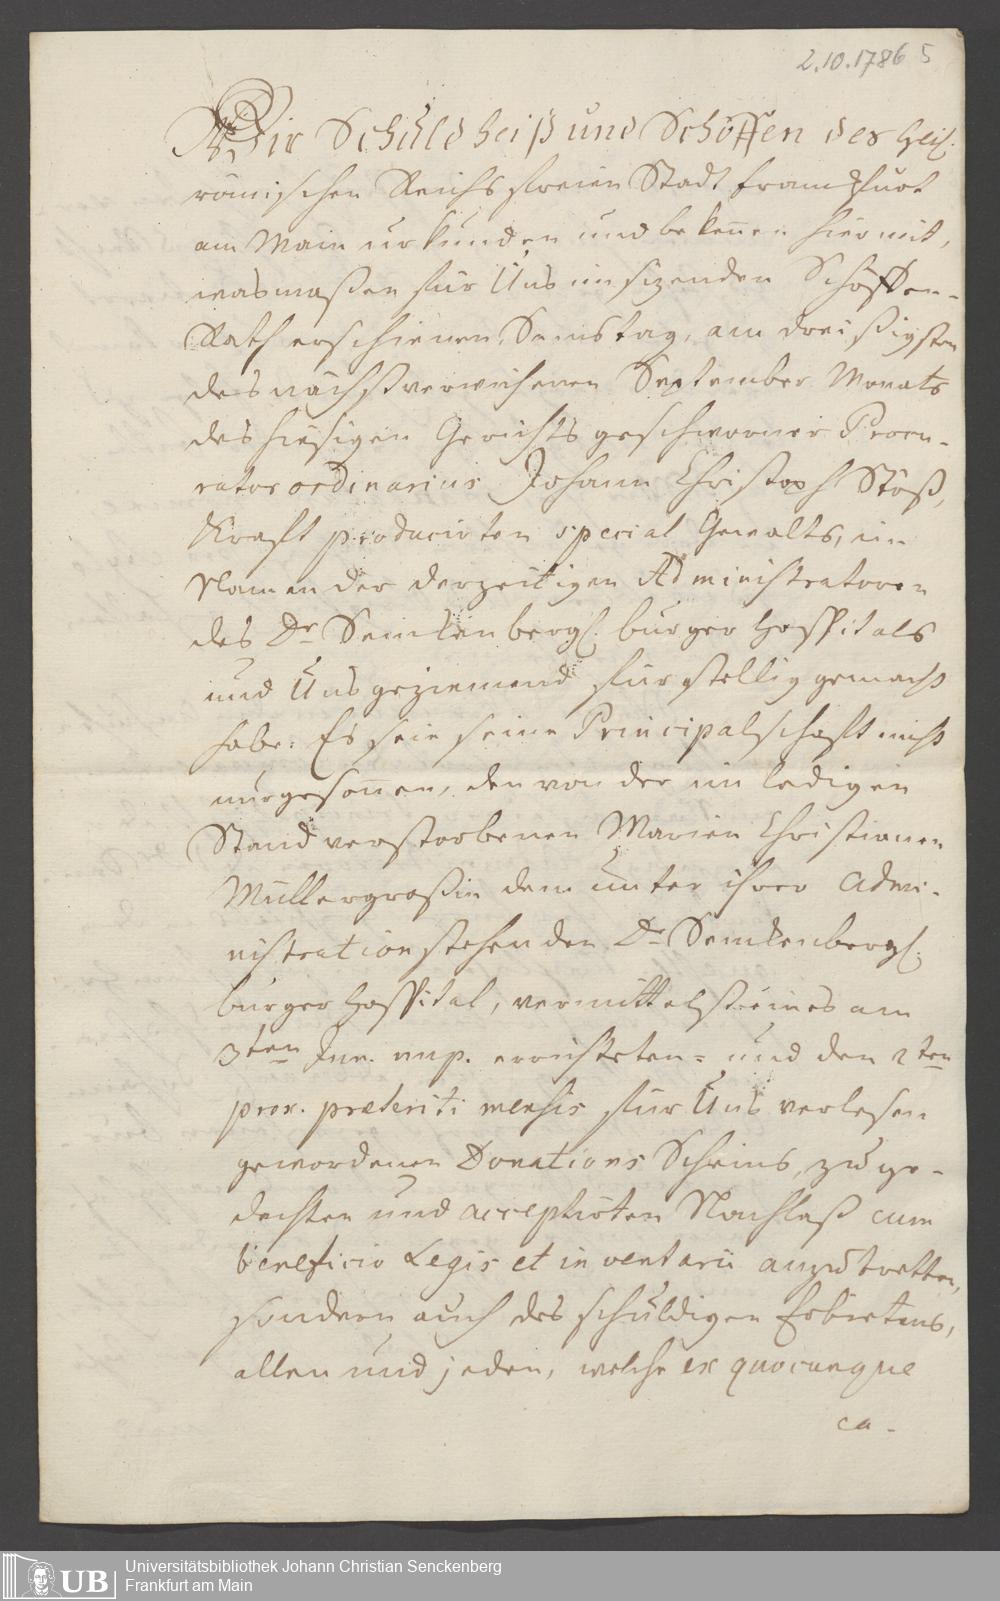 2.10.1786 5
Wir Schuldheiß und Schöffen des heil.
römischen Reichs freien Stadt Frankfurt
am Main urkunden und bekennen hiermit,
wasmaßen für Uns im sizenden Schöffen-
Rath erschienen, Samstag, am dreißigsten
des nächstverwichenen September Monats
des hiesigen Gerichts geschworner Procu-
rator ordinarius Johann Christoph Stöß,
Kraft producirten special Gewalts, im
Namen der derzeitigen Administratoren
des Dr Senckenbergl. burger hospitals
und Uns geziemend fürstellig gemacht
habe: Es seie seine Principalschaft nicht
nur gesonnen, den von der im ledigen
Stand verstorbenen Marien Christianen
Müllergroßin dem unter ihrer Admi-
nistration stehenden Dr Senckenbergl.
burger hospital, vermittelst eines am
3ten Jun. nup. errichteten= und den 2ten
prox. præteriti mensis für Uns verlesen
gewordenen Donations Scheins, zu ge-
dachten und acceptirten Nachlaß cum
beneficio Legis et inventarii anzutretten,
sondern auch des schuldigen Erbietens,
allen und jeden, welche ex quocunque
ca-
UB Universitätsbibliothek Johann Christian Senckenberg
Frankfurt am Main